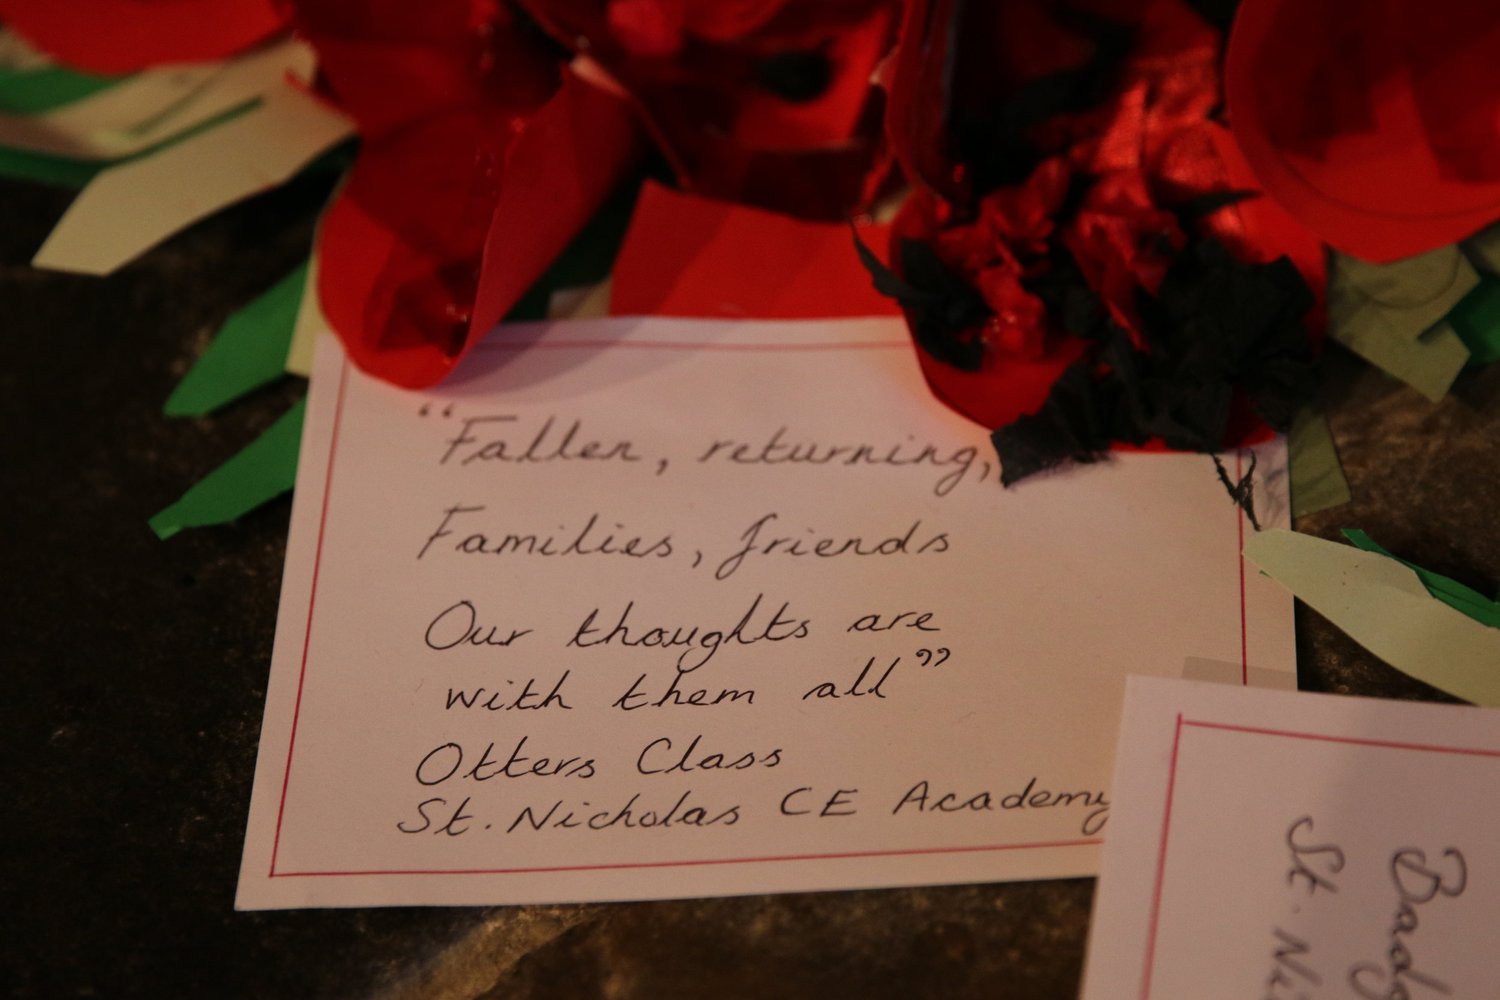 “Fallen, returning,
Families, friends
Our thoughts are
with them all”
Otters Class
St. Nicholas CE Academy
St. Ni